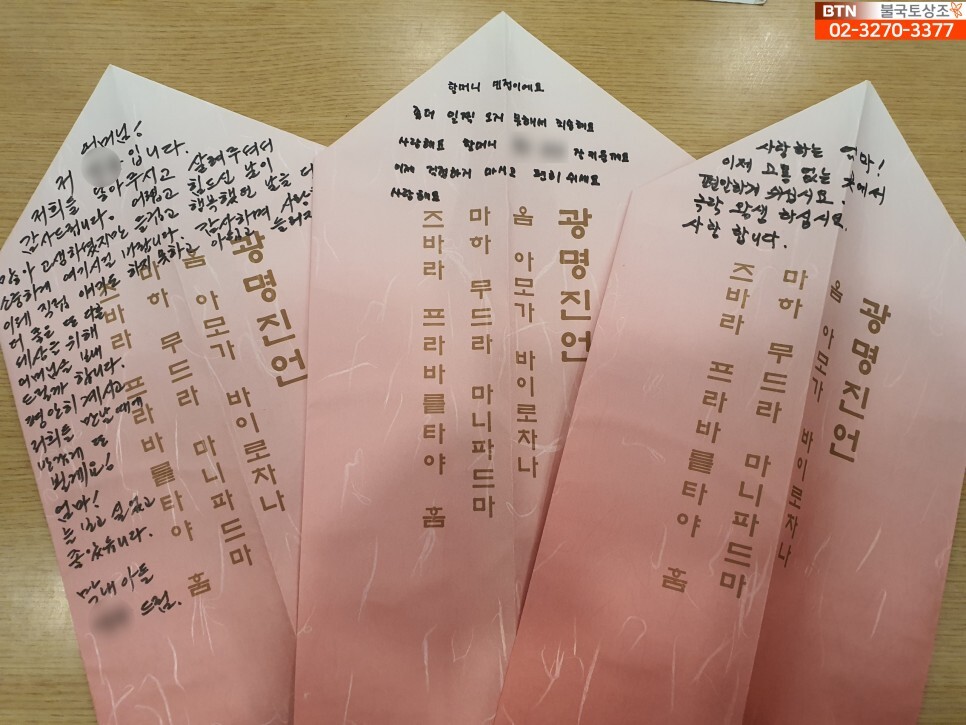 BTN 불국토상조
02-3270-3377
어머님!
저 입니다.
저희를 낳아주시고 살펴주셔서
감사드립니다. 어렵고 힘드신 날이
많아 고생하셨지만 즐겁고 행복했던 날을 더
소중하게 여기시길 바랍니다. 감사하며 사랑
이제 직접 얘기를 하지 못하고
더 좋은 또 다른
세상을 위해
어머님을 보내
드릴까 합니다.
평안히 계시고
저희를 만날 때에
또
반갑게
뵐게요!
엄마!
늘 보고 싶었고
좋았습니다.
막내아들
드림.
광명진언
옴 아모가 바이로차나
마하 무드라 마니파드마
즈바라 프라바를타야 훔
할머니 민정이에요
좀더 일찍 오지 못해서 죄송해요
사랑해요 할머니 잘키울게요
이제 걱정하지 마시고 편히 쉬세요
사랑해요
광명진언
옴 아모가 바이로차나
마하 무드라 마니파드마
즈바라 프라바를타야 훔
사랑하는 엄마!
이제 고통 없는 곳에서
편안하게 쉬십시요.
극락 왕생 하십시요.
사랑 합니다.
광명진언
옴 아모가 바이로차나
마하 무드라 마니파드마
즈바라 프라바를타야 훔